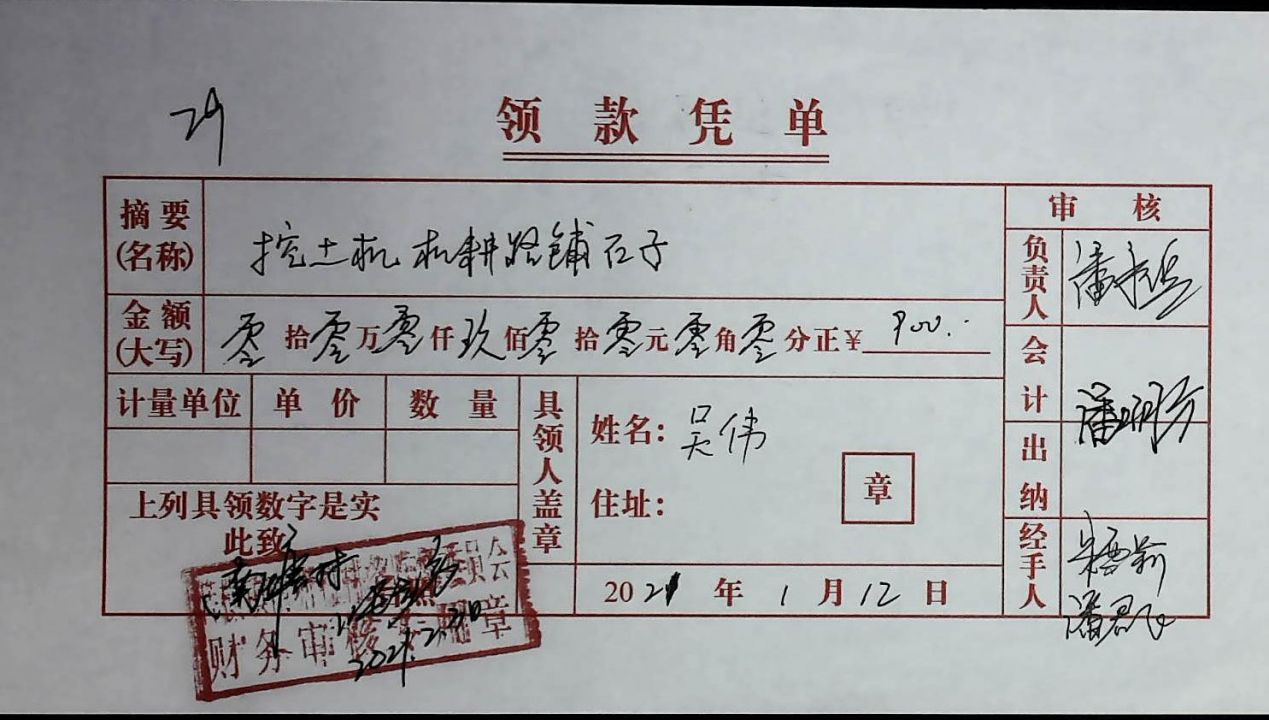 29
领款凭单
摘要(名称) 挖土机 机耕路铺石子
审核
负责人
金额(大写) 零拾零万零仟玖佰零拾零元零角零分正¥ 900.
会计
计量单位 单价 数量
具领人盖章
姓名: 吴伟
住址:
章
出纳
上列具领数字是实
此致
经手人
2021年1月12日
财务审核专用章